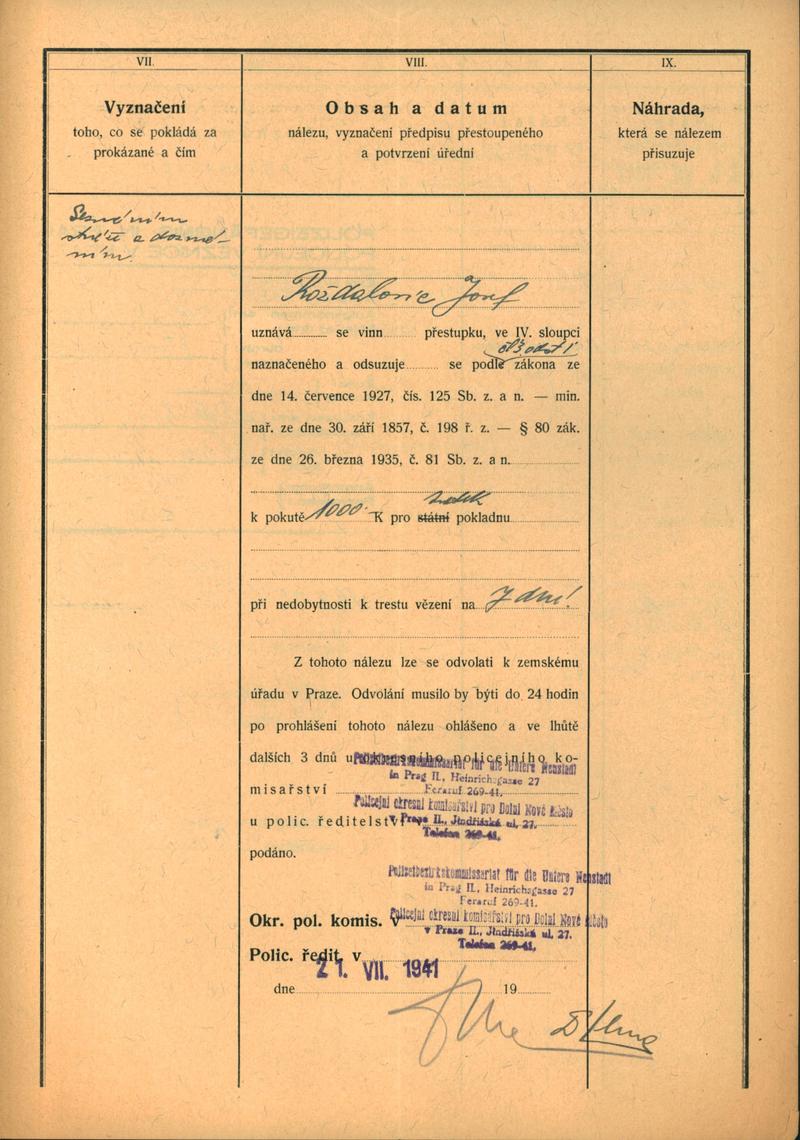 VII.
Vyznačení
toho, co se pokládá za
prokázané a čím
VIII.
Obsah a datum
nálezu, vyznačení předpisu přestoupeného
a potvrzení úřední
IX.
Náhrada,
která se nálezem
přisuzuje
Rozdalovic Josef
uznává se vinn přestupku, ve IV. sloupci
naznačeného a odsuzuje se podle zákona ze
dne 14. července 1927, čís. 125 Sb. z. a n. — min.
nař. ze dne 30. září 1857, č. 198 ř. z. — § 80 zák.
ze dne 26. března 1935, č. 81 Sb. z. a n.
k pokutě 1000.- K pro státní pokladnu
při nedobytnosti k trestu vězení na 7 dní!
Z tohoto nálezu lze se odvolati k zemskému
úřadu v Praze. Odvolání musilo by býti do 24 hodin
po prohlášení tohoto nálezu ohlášeno a ve lhůtě
dalších 3 dnů u policejního ko-
Polizeibezirkskommissariat für die Untere Neustadt
in Prag II., Heinrichsgasse 27
misařství
Fernruf 269-41.
Policejní okresní komisařství pro Dolní Nové Město
u polic. ředitelství
v Praze II., Jindřišská ul. 27.
Telefon 269-41.
podáno.
Polizeibezirkskommissariat für die Untere Neustadt
in Prag II., Heinrichsgasse 27
Fernruf 269-41.
Okr. pol. komis. v
Policejní okresní komisařství pro Dolní Nové Město
v Praze II., Jindřišská ul. 27.
Telefon 269-41.
Polic. ředit. v
21. VII. 1941
dne 19